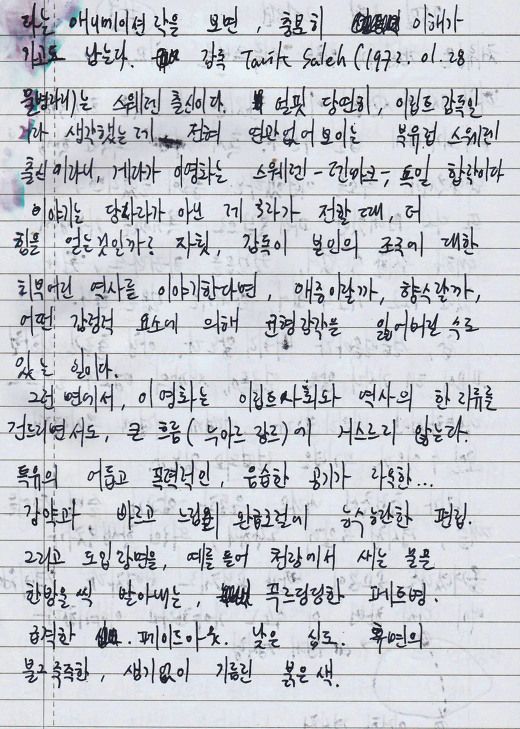 라는 애니메이션 작을 보면, 충분히 이해가
가고도 남는다. 감독 Tarik Saleh (1972. 01. 28
)는 스웨덴 출신이다. 얼핏 당연히, 이집트 감독일
거라 생각했는데 전혀 연관없어보이는 북유럽 스웨덴
출신이라니, 게다가 이영화는 스웨덴-덴마크-, 독일 합작이다
이야기는 당사자가 아닌 제3자가 전할 때, 더
힘을 얻는것일까? 자칫, 감독이 본인의 조국에 대한
치부어린 역사를 이야기한다면, 애증이랄까, 향수랄까,
어떤 감정적 요소에 의해 균형감각을 잃어버릴 수도
있는 일이다.
그런 면에서, 이영화는 이집트사회와 역사의 한 리류를
건드리면서도, 큰 흐름(누아르 장르)에 거스르지 않는다.
특유의 어둡고 폭력적인, 음습한 공기가 자욱한...
강약과 빠르고 느림의 완급조절에 능수능란한 편집.
그리고 도입장면을, 예를들어 천장에서 새는 물을
한방울씩 받아내는, 푸르딩딩한 페트병.
급격한 . 페이드아웃. 낮은 심도. 후면의
불그죽죽한, 생기없이 기름린 붉은색.